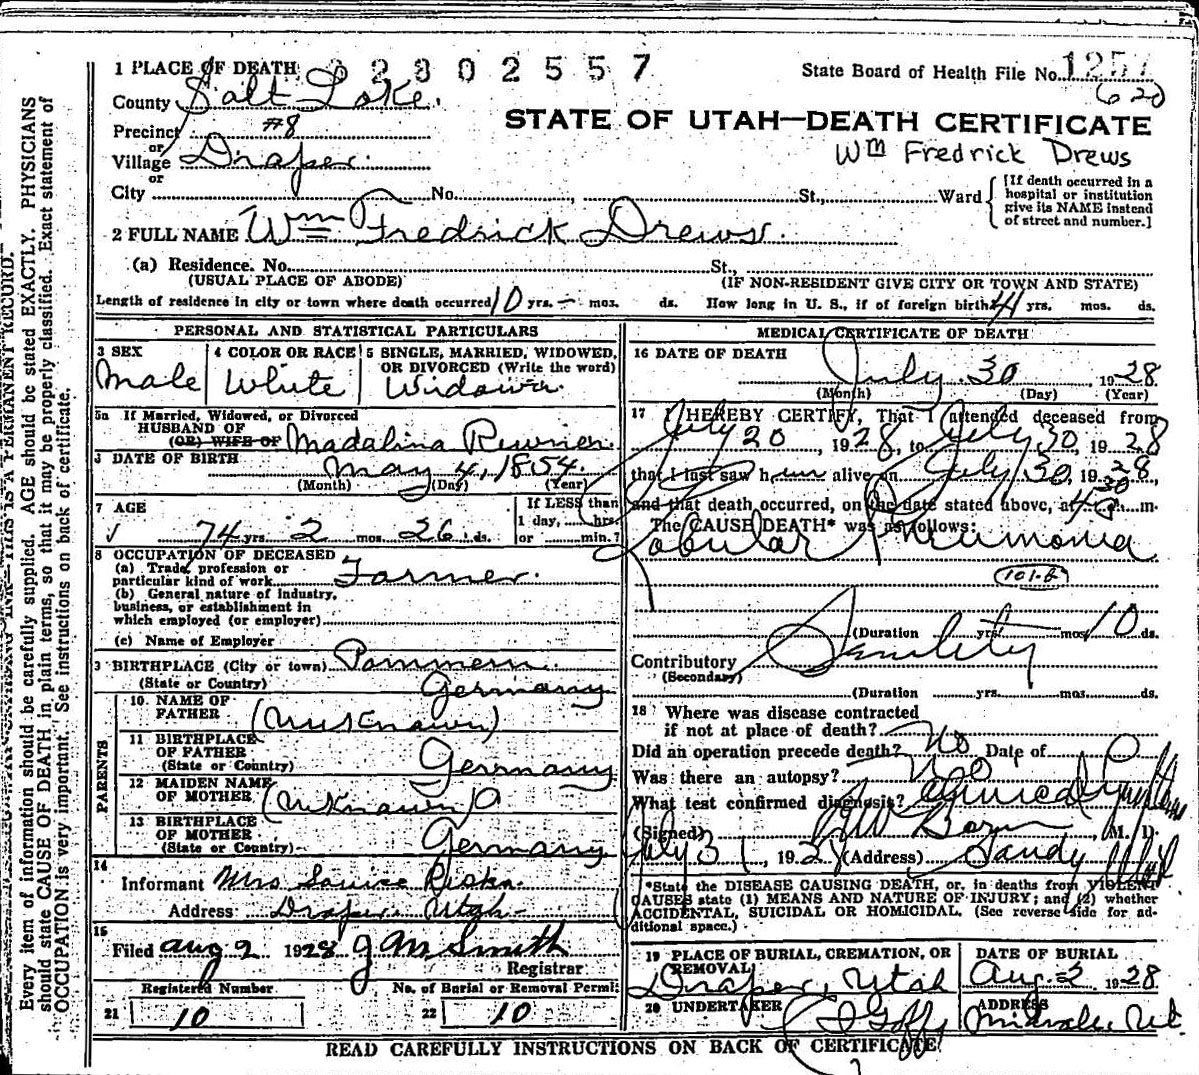 1 PLACE OF DEATH 2 3 0 2 5 5 7
State Board of Health File No. 1257
620
County Salt Lake.
Precinct #8
or
Village Draper.
or
STATE OF UTAH—DEATH CERTIFICATE
Wm Fredrick Drews
City No. St., Ward
[If death occurred in a hospital or institution give its NAME instead of street and number.]
2 FULL NAME Wm Fredrick Drews.
(a) Residence. No. St.,
(USUAL PLACE OF ABODE) (IF NON-RESIDENT GIVE CITY OR TOWN AND STATE)
Length of residence in city or town where death occurred 10 yrs. — mos. ds. How long in U. S., if of foreign birth? 41 yrs. mos. ds.
PERSONAL AND STATISTICAL PARTICULARS
3 SEX
Male
4 COLOR OR RACE
White
5 SINGLE, MARRIED, WIDOWED,
OR DIVORCED (Write the word)
5a If Married, Widowed, or Divorced
HUSBAND OF
(OR) WIFE OF Madalina
6 DATE OF BIRTH May 4, 1854.
(Month) (Day) (Year)
7 AGE
74 yrs. 2 mos. 26 ds.
If LESS than
1 day, hrs.
or min.?
8 OCCUPATION OF DECEASED
(a) Trade, profession or
particular kind of work Farmer.
(b) General nature of industry,
business, or establishment in
which employed (or employer)
(c) Name of Employer
9 BIRTHPLACE (City or town) Pommern.
(State or Country) Germany
PARENTS
10 NAME OF
FATHER (Unknown)
11 BIRTHPLACE
OF FATHER
(State or Country) Germany
12 MAIDEN NAME
OF MOTHER (Unknown)
13 BIRTHPLACE
OF MOTHER
(State or Country) Germany
14
Informant Mrs Louise
Address Draper, Utah
15
Filed Aug 2 1928 J M Smith
Registrar
Registered Number No. of Burial or Removal Permit
21 10 22 10
MEDICAL CERTIFICATE OF DEATH
16 DATE OF DEATH
July 30, 1928
(Month) (Day) (Year)
17 I HEREBY CERTIFY, That I attended deceased from
July 20, 1928, to July 30, 1928
that I last saw him alive on July 30, 1928,
and that death occurred, on the date stated above, at m.
The CAUSE DEATH* was as follows:
Lobular Pneumonia
101-B
(Duration yrs. mos. 10 ds.
Contributory Senility
(Secondary)
(Duration yrs. mos. ds.
18 Where was disease contracted
if not at place of death?
Did an operation precede death? No Date of
Was there an autopsy? No
What test confirmed diagnosis? Clinical Symptoms
(Signed) M. D.
July 31, 1928 (Address) Sandy Utah
*State the DISEASE CAUSING DEATH, or, in deaths from VIOLENT
CAUSES state (1) MEANS AND NATURE OF INJURY; and (2) whether
ACCIDENTAL, SUICIDAL OR HOMICIDAL. (See reverse side for ad-
ditional space.)
19 PLACE OF BURIAL, CREMATION, OR
REMOVAL
Draper, Utah
DATE OF BURIAL
Aug. 2 1928
20 UNDERTAKER
Goff
ADDRESS
Midvale, Ut.
READ CAREFULLY INSTRUCTIONS ON BACK OF CERTIFICATE
Every item of information should be carefully supplied. AGE should be stated EXACTLY. PHYSICIANS
should state CAUSE OF DEATH in plain terms, so that it may be properly classified. Exact statement of
OCCUPATION is very important. See instructions on back of certificate.